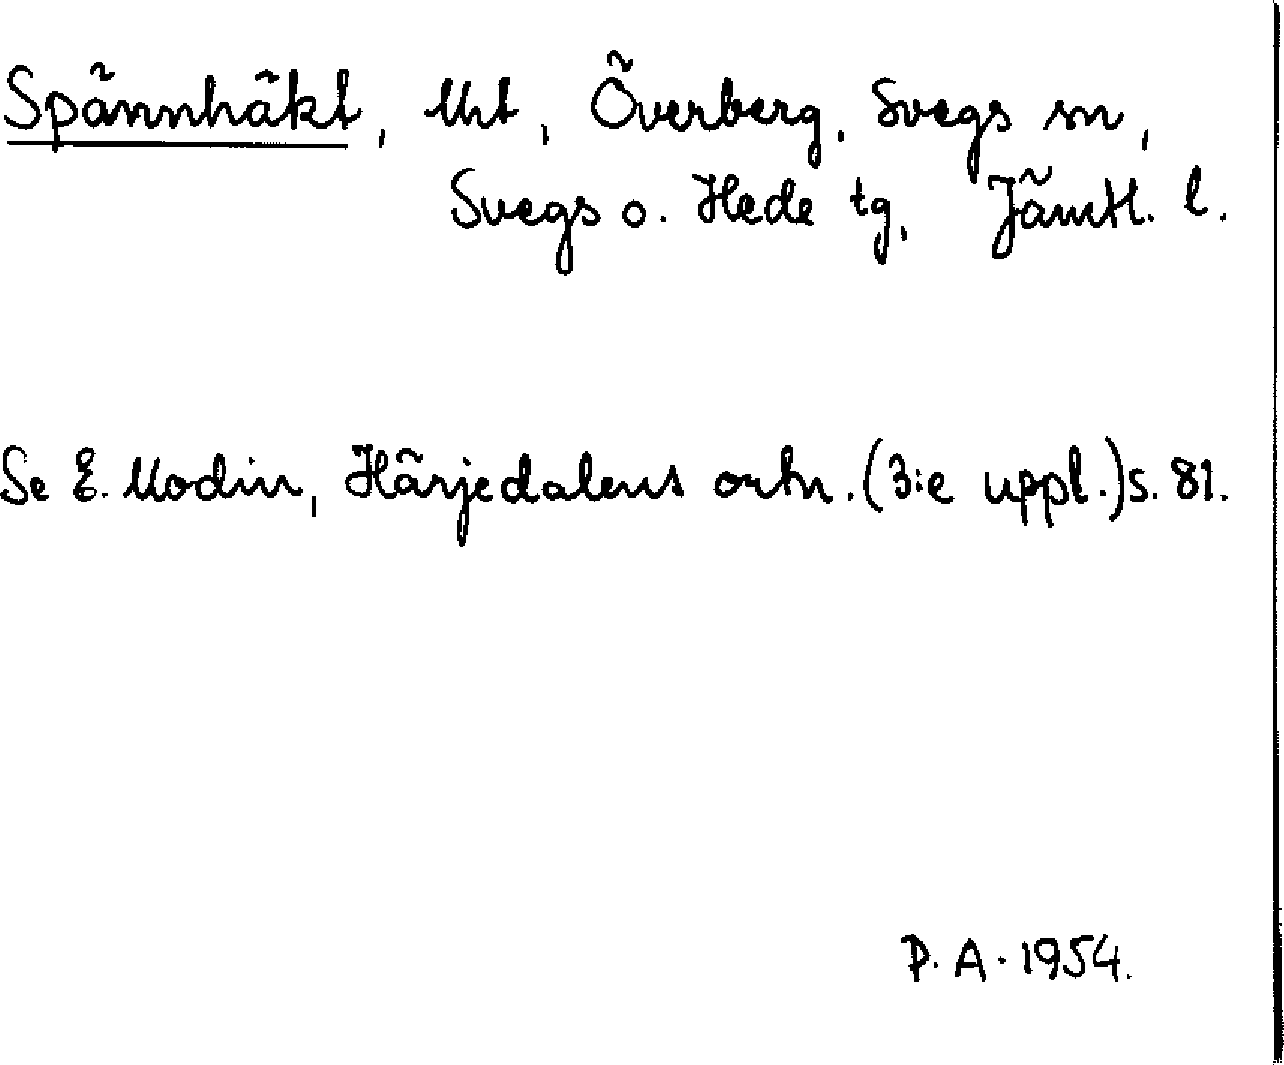 Spännhäkt, Urt, Överberg, Svegs sn,
Svegs o. Hede tg, Jämtl. l.
Se E. Modin, Härjedalens ortn. (3:e uppl.) s. 81.
P. A. 1954.